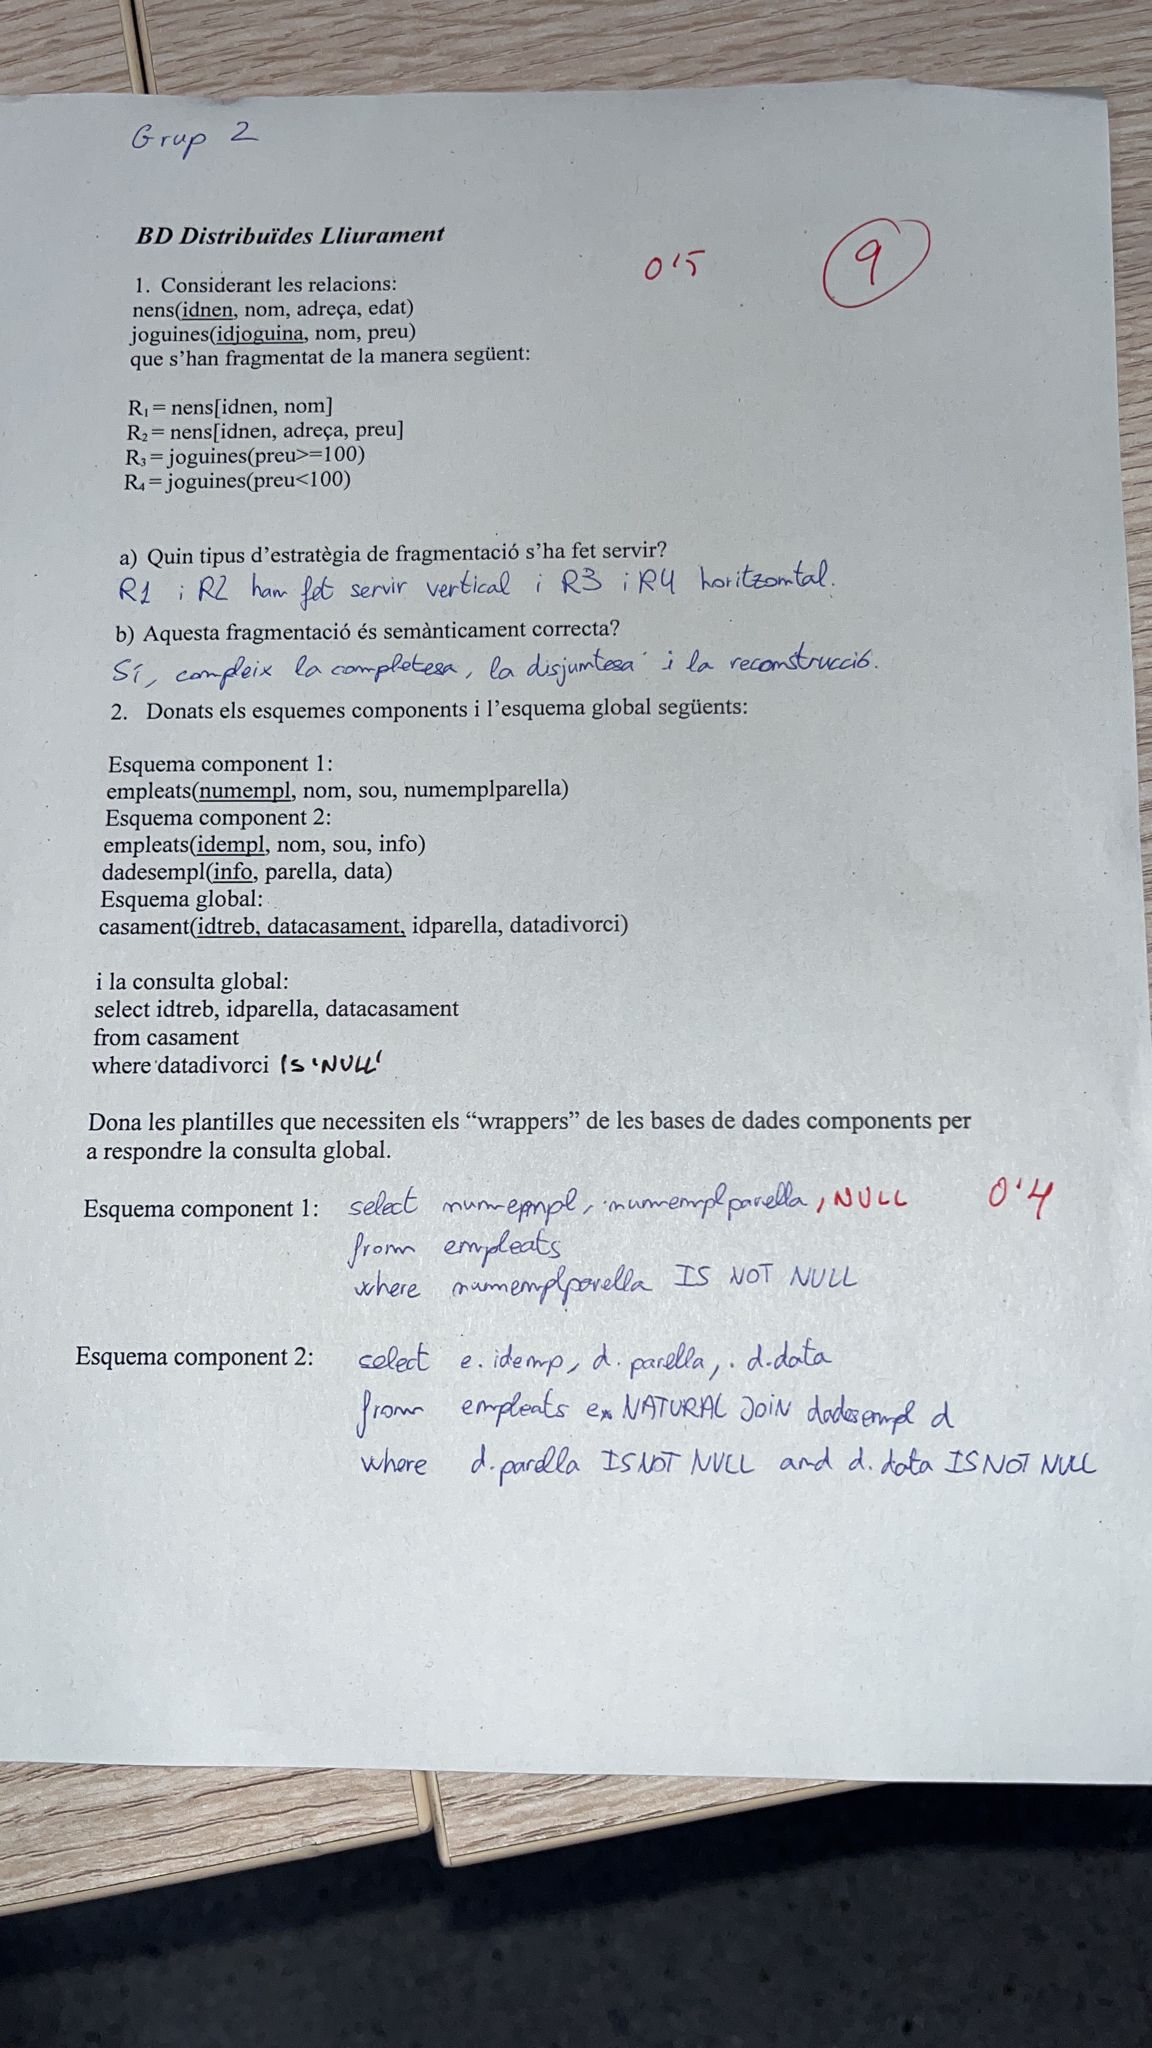 Grup 2
BD Distribuïdes Lliurament
0'5
9
1. Considerant les relacions:
nens(idnen, nom, adreça, edat)
joguines(idjoguina, nom, preu)
que s'han fragmentat de la manera següent:
R1 = nens[idnen, nom]
R2 = nens[idnen, adreça, preu]
R3 = joguines(preu>=100)
R4 = joguines(preu<100)
a) Quin tipus d'estratègia de fragmentació s'ha fet servir?
R1 i R2 han fet servir vertical i R3 i R4 horitzontal.
b) Aquesta fragmentació és semànticament correcta?
Sí, compleix la completesa, la disjuntesa i la reconstrucció.
2. Donats els esquemes components i l'esquema global següents:
Esquema component 1:
empleats(numempl, nom, sou, numemplparella)
Esquema component 2:
empleats(idempl, nom, sou, info)
dadesempl(info, parella, data)
Esquema global:
casament(idtreb, datacasament, idparella, datadivorci)
i la consulta global:
select idtreb, idparella, datacasament
from casament
where datadivorci IS 'NULL'
Dona les plantilles que necessiten els “wrappers” de les bases de dades components per
a respondre la consulta global.
Esquema component 1: select numempl, numemplparella, NULL 0'4
from empleats
where numemplparella IS NOT NULL
Esquema component 2: select e.idemp, d.parella, d.data
from empleats e NATURAL JOIN dadesempl d
where d.parella IS NOT NULL and d.data IS NOT NULL